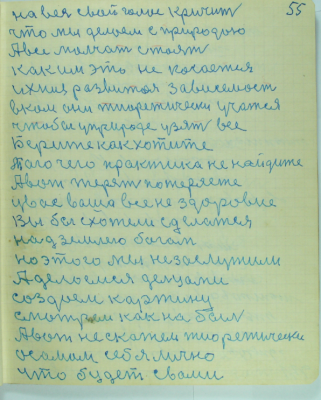 на вся свой голос кричит 55
что мы делоем с природою
А все молчат стоят
как им это не косается
их низ розвитоя зависемост
вком они тиоретически учатся
чтобы уприроде узят все
Берите как хотите
того чего практика не найдите
А вот терят потеряете
увас ваша все не здоровие
Вы бы схотели сделатся
надземлею богам
но этого мы незаслужили
А делоемся денцами
создоем картину
смотрем как на был
А вот не скажем тиоретически
осамом себя лично
что будет свами